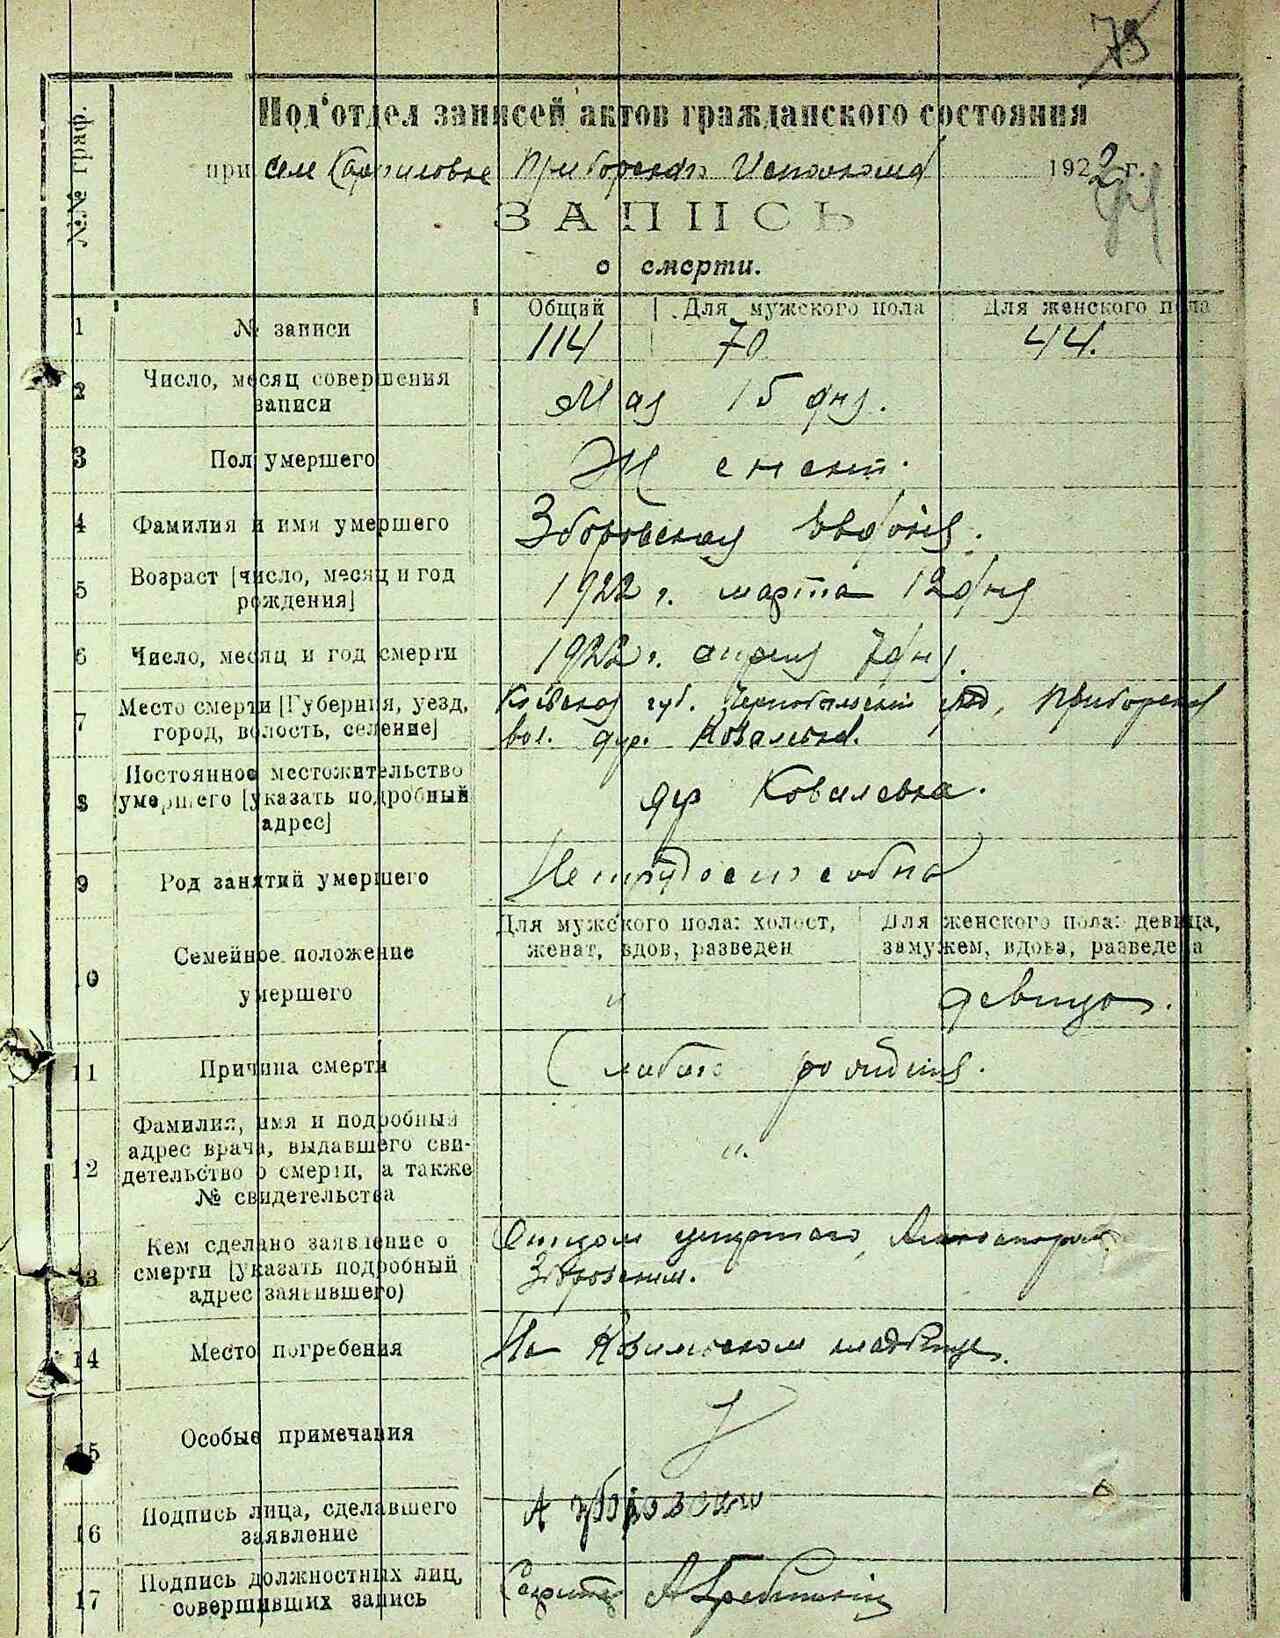 75
Под'отдел записей актов гражданского состояния
при селе Карпиловке Приборском Исполкоме 1922 г.
ЗАПИСЬ
о смерти.
№№ граф.
Общий Для мужского пола Для женского пола
1 № записи 114 70 44.
2 Число, месяц совершения
записи
Мая 15 дня.
3 Пол умершего Женский.
4 Фамилия и имя умершего Зборовская
5 Возраст [число, месяц и год
рождения]
1922 г. марта 12 дня
6 Число, месяц и год смерти 1922 г. апреля 7 дня.
7 Место смерти [Губерния, уезд,
город, волость, селение]
Киевская губ. Чернобыльский уезд, Приборская
вол. дер. Ковалевка.
8 Постоянное местожительство
умершего [указать подробный
адрес]
дер Ковалевка.
9 Род занятий умершего Нетрудоспособна
Для мужского пола: холост,
женат, вдов, разведен
Для женского пола: девица,
замужем, вдова, разведена
10 Семейное положение
умершего
" девица.
11 Причина смерти Слабость рождения.
12 Фамилия, имя и подробный
адрес врача, выдавшего сви-
детельство о смерти, а также
№ свидетельства
".
13 Кем сделано заявление о
смерти [указать подробный
адрес заявившего)
Отцом умершего,
Зборовским.
14 Место погребения На Ковалевском кладбище.
15 Особые примечания
16 Подпись лица, сделавшего
заявление
А Зборовский
17 Подпись должностных лиц,
совершивших запись
Секретарь